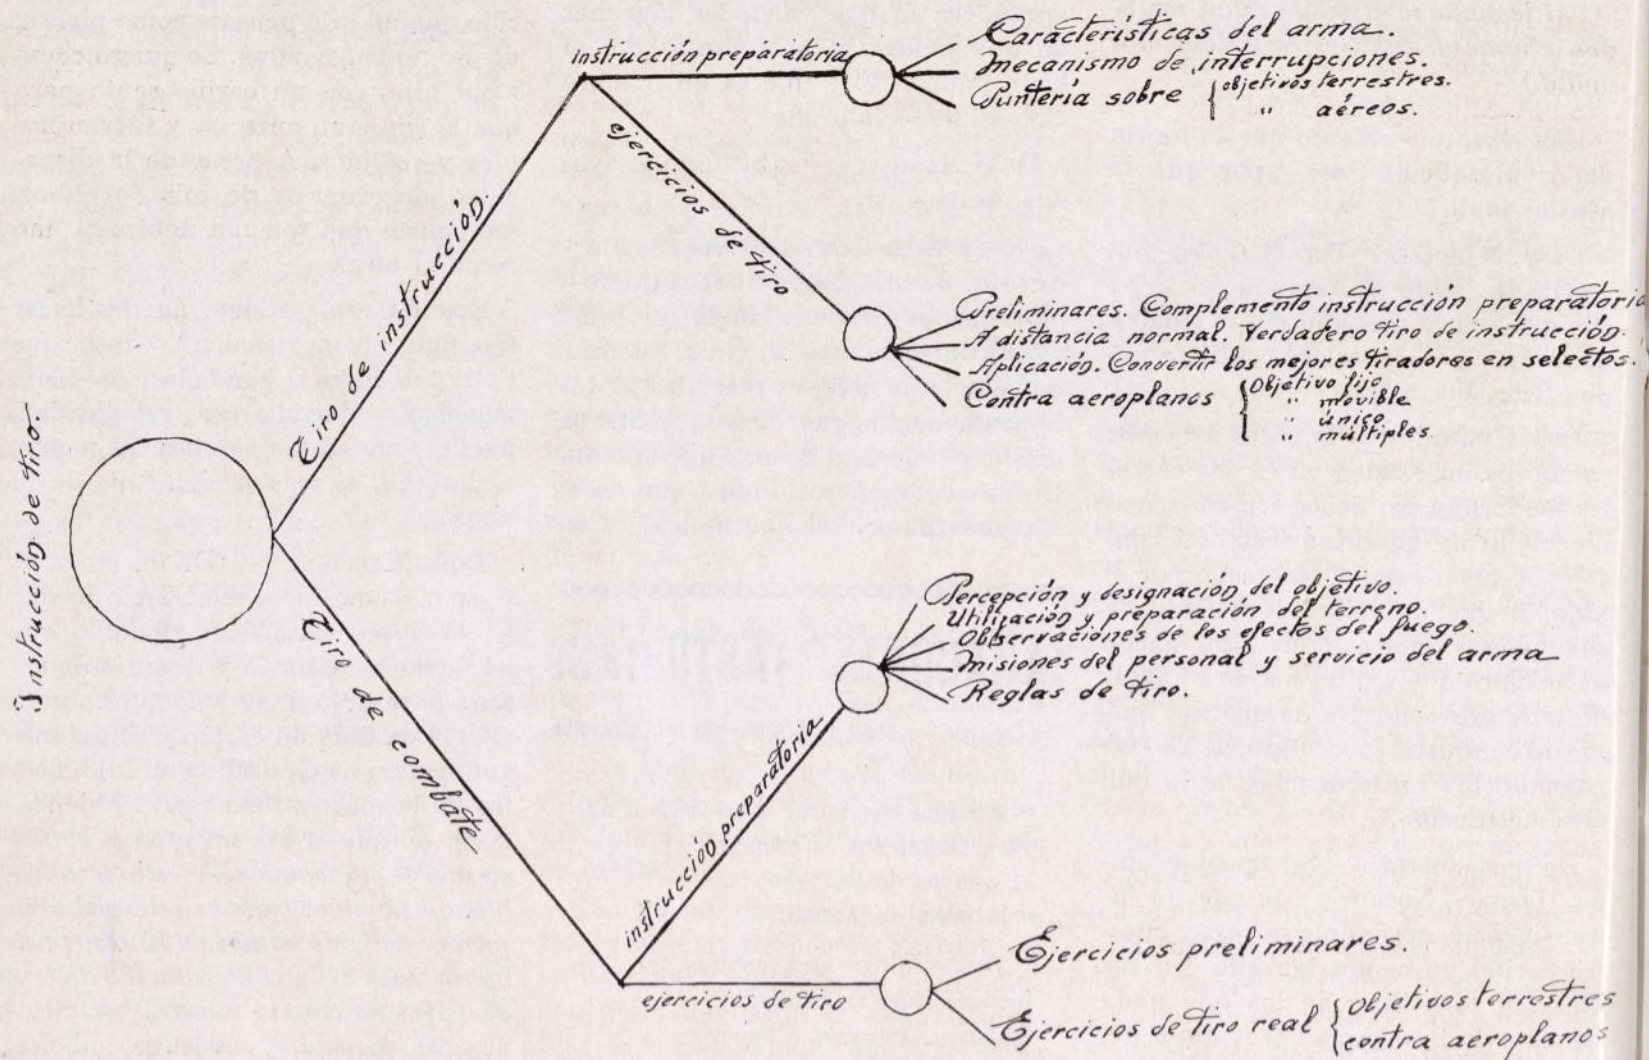 Instrucción de tiro.
Tiro de instrucción.
instrucción preparatoria
Características del arma.
Mecanismo de interrupciones.
Puntería sobre { objetivos terrestres.
" aéreos.
ejercicios de tiro
Preliminares. Complemento instrucción preparatoria
A distancia normal. Verdadero tiro de instrucción.
Aplicación. Convertir los mejores tiradores en selectos.
Contra aeroplanos { Objetivo fijo
" movible
" único
" múltiples
Tiro de combate
instrucción preparatoria
Percepción y designación del objetivo.
Utilización y preparación del terreno.
Observaciones de los efectos del fuego.
Misiones del personal y servicio del arma
Reglas de tiro.
ejercicios de tiro
Ejercicios preliminares.
Ejercicios de tiro real { Objetivos terrestres
contra aeroplanos